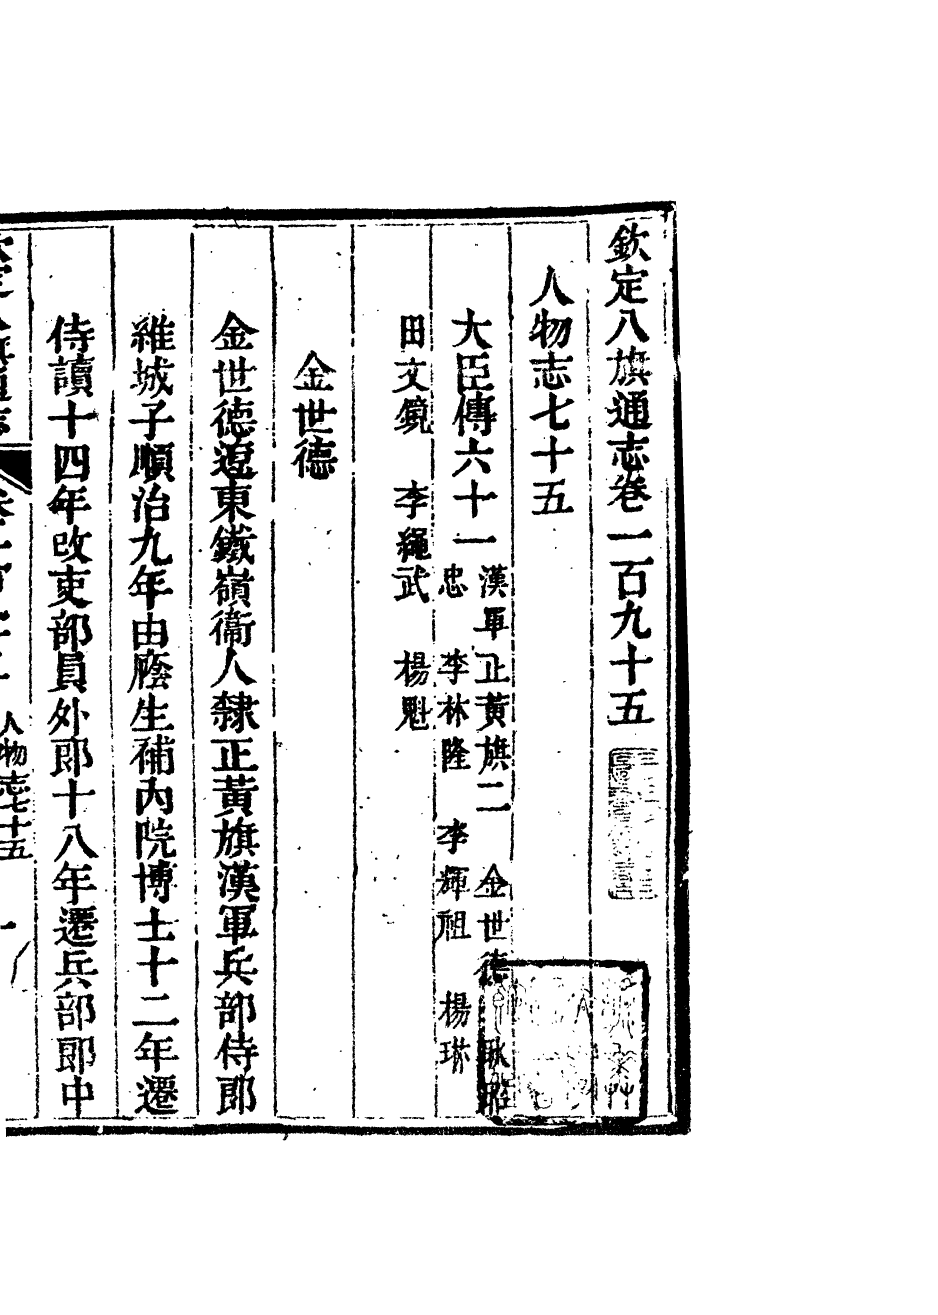 欽定八旗通志卷一百九十五
人物志七十五
大臣傳六十一
漢軍正黃旗二　金世德
忠　李林隆　李輝祖　楊琳
田文鏡　李繩武　楊魁
金世德
金世德遼東鐵嶺衞人隸正黃旗漢軍兵部侍郎
維城子順治九年由廕生補內院博士十二年遷
侍讀十四年改吏部員外郎十八年遷兵部郎中
人物志七十五　一